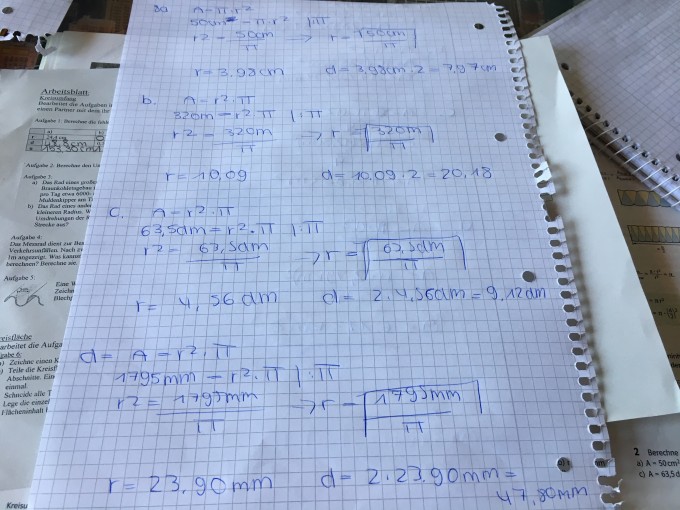 8a A = π·r²
50cm² = π·r² |:π
r² = 50cm / π → r = √50cm / π
r = 3,98cm d = 3,98cm·2 = 7,97cm
b. A = r²·π
320m = r²·π |:π
r² = 320m / π → r = √320m / π
r = 10,09 d = 10.09·2 = 20,18
c. A = r²·π
63,5dm = r²·π |:π
r² = 63,5dm / π → r = √63,5dm / π
r = 4,56dm d = 2·4,56dm = 9,12dm
d = A = r²·π
1795mm = r²·π |:π
r² = 1795mm / π → r = √1795mm / π
r = 23,90mm d = 2·23,90mm =
47,80mm
Arbeitsblatt
Kreisumfang
Bearbeitet die Aufgaben
einem Partner mit dem
Aufgabe 1: Berechne die
Aufgabe 2: Berechne den
Aufgabe 3:
a) Das Rad eines
Braunkohletagebau
pro Tag etwa 6000
Muldenkipper am
b) Das Rad eines
kleineren Radius.
Umdrehungen der
Strecke aus?
Aufgabe 4:
Das Messrad dient zur
Verkehrsunfällen.
1m angezeigt. Was
berechnen? Berechne
Aufgabe 5:
Eine
Zeichn
Blech
Kreisfläche
Bearbeitet die
Aufgabe 6:
a) Zeichne einen K
Teile die Kreisf
Abschnitte. Ein
einmal.
Schneide alle
Lege die einze
Flächeninhalt
Kreisu
2 Berechne
a) A = 50cm²
c) A = 63,5d